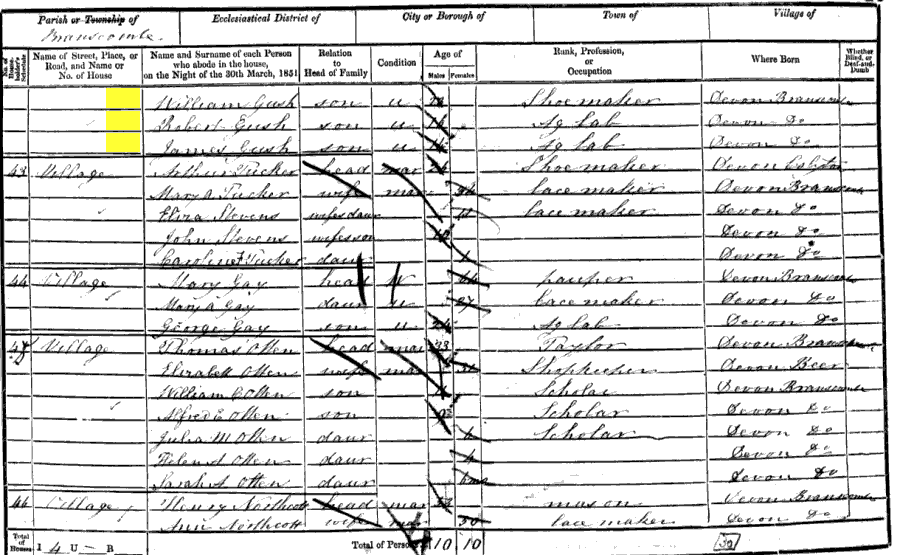 Parish or Township of
Ecclesiastical District of
City or Borough of
Town of
Village of
Branscombe
Name of Street, Place, or Road, and Name or No. of House
Name and Surname of each Person who abode in the house, on the Night of the 30th March, 1851
Relation to Head of Family
Condition
Age of
Males
Females
Rank, Profession, or Occupation
Where Born
Whether Blind, or Deaf-and-Dumb
William Gush son u Shoemaker Devon Branscombe
Robert Gush son u Ag Lab Devon Do
James Gush son u Ag Lab Devon Do
43 Village Arthur Tucker head mar Shoemaker Devon
Mary A Tucker wife mar lace maker Devon Branscombe
Eliza Stevens wifes daur lace maker Devon Do
John Stevens wifes son Devon Do
Caroline F Tucker daur Devon Do
44 Village Mary Gay head W pauper Devon Branscombe
Mary A Gay daur u 27 lace maker Devon Do
George Gay son u Ag Lab Devon Do
Village Thomas Otten head mar 33 Taylor Devon Branscombe
Elizabeth Otten wife mar Shopkeeper Devon Beer
William Otten son Scholar Devon Branscombe
Alfred E Otten son Scholar Devon Do
Julia M Otten daur Scholar Devon Do
Helen A Otten daur 4 Devon Do
Sarah A Otten daur Devon Do
46 Village Henry Northcott head mar mason Devon Branscombe
Ann Northcott wife mar 30 lace maker Devon Do
Total of Houses 1 4 U – B
Total of Persons 10 10